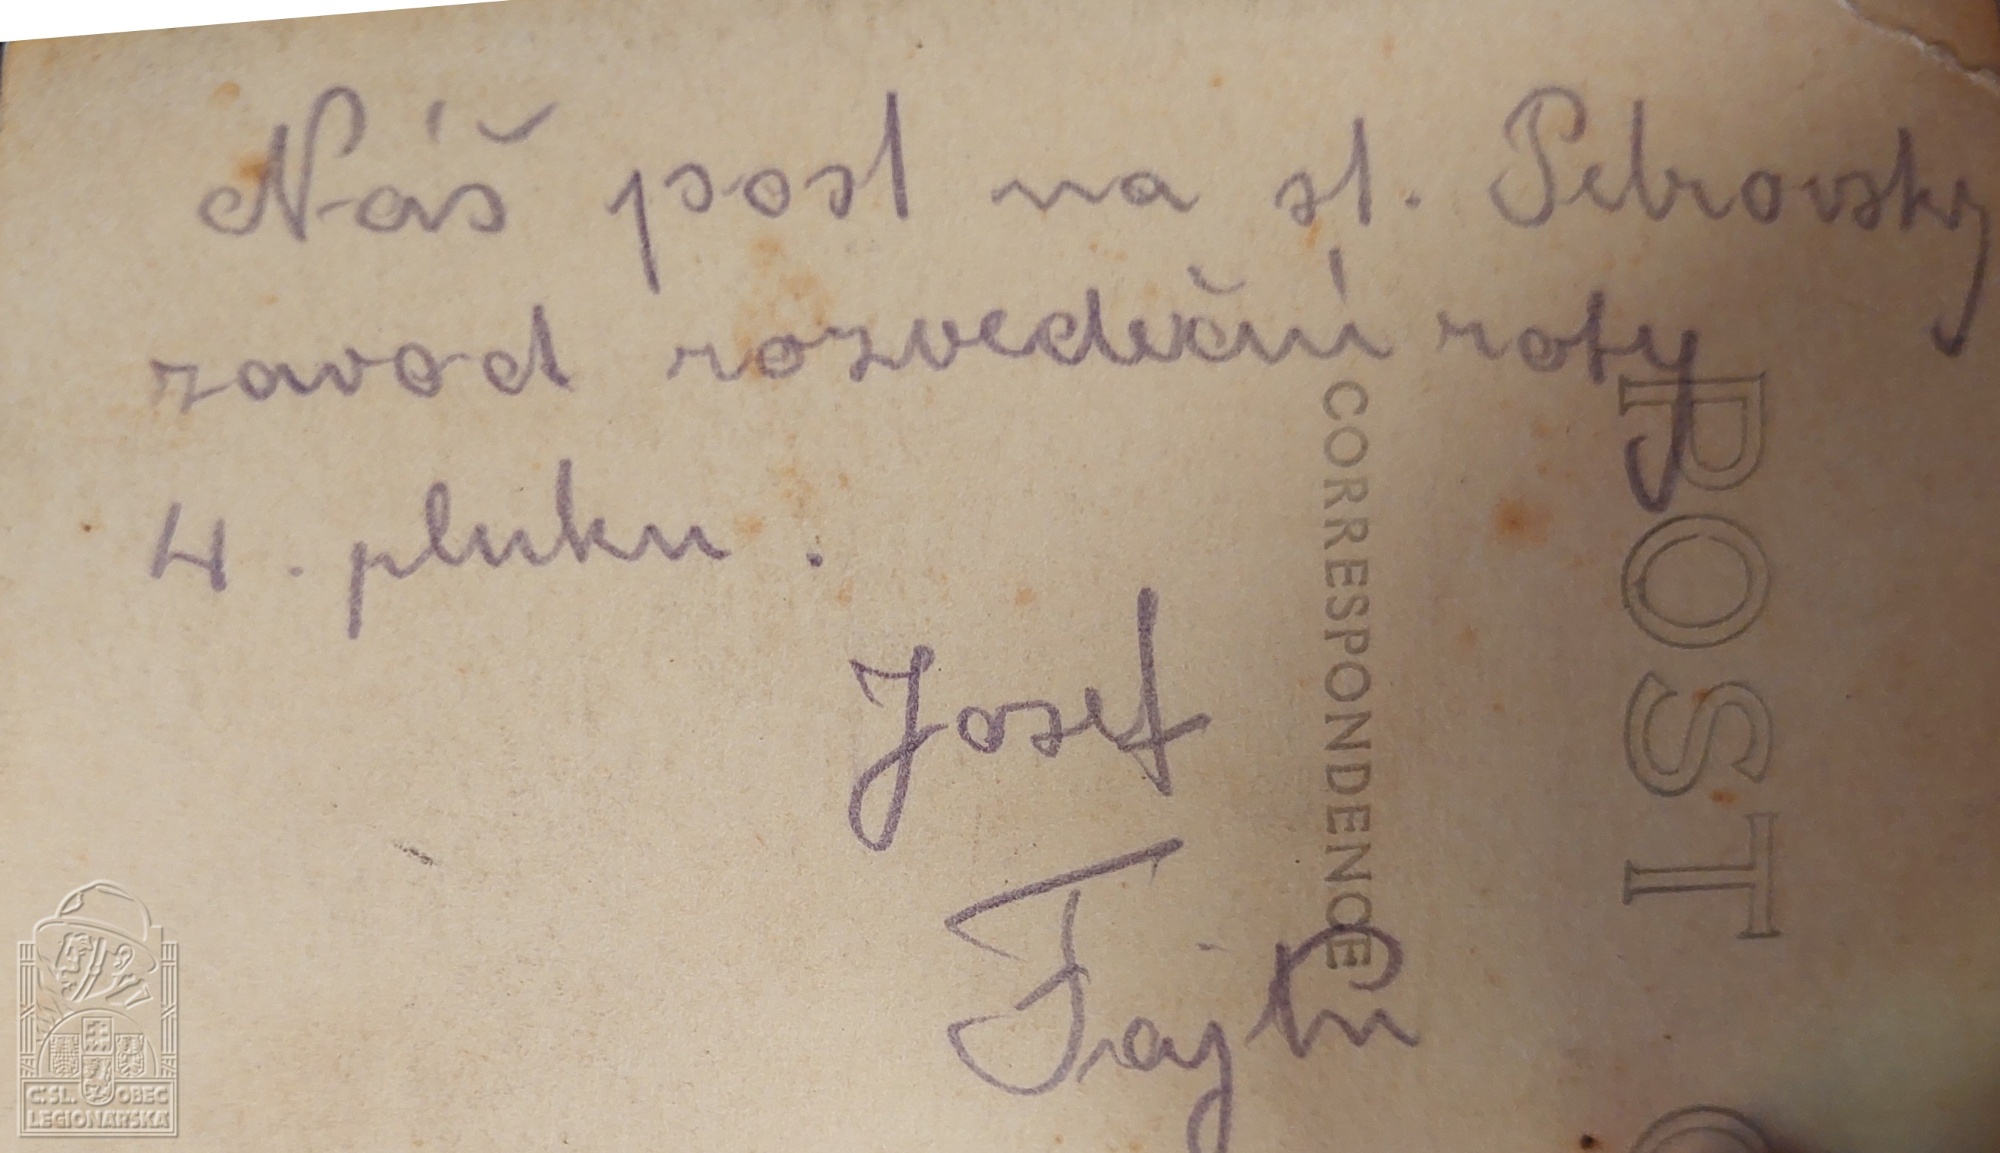 Náš post na st. Petrovský
zavod rozvedční roty
4. pluku.
Josef
CORRESPONDENCE
POST
Č.SL. OBEC
LEGIONÁŘSKÁ